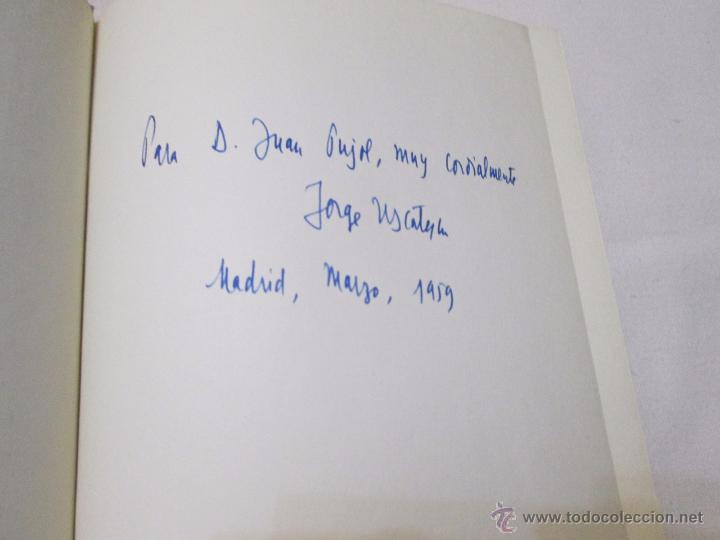 Para D. Juan Pujol, muy cordialmente
Jorge Uscatescu
Madrid, Marzo, 1959
© www.todocoleccion.net